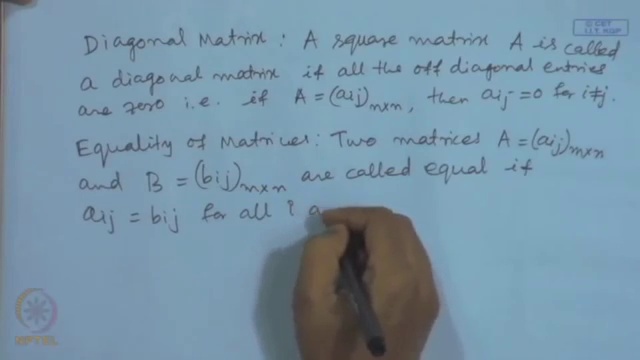 © CET
I.I.T. KGP
Diagonal Matrix : A square matrix A is called
a diagonal matrix if all the off diagonal entries
are zero i.e. if A = (aij)n×n, then aij = 0 for i≠j.
Equality of Matrices: Two matrices A = (aij)m×n
and B = (bij)m×n are called equal if
aij = bij for all i a
NPTEL